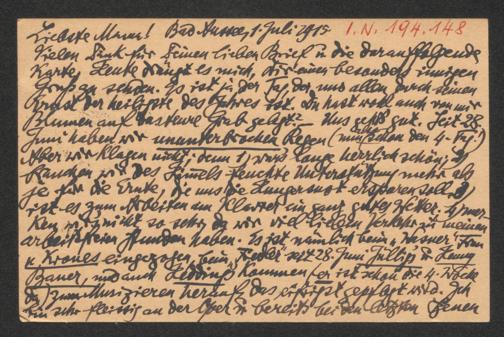 Liebste Mama! Bad Aussee, 1. Juli 1915 I.N. 194.148
Vielen Dank für Deinen lieben Brief u die darauffolgende
Karte, heute drängt es mich, Dir einen besonders innigen
Gruß zu senden. Es ist ja der Tag der uns allen durch seinen
der heiligste des Jahres ist. Du hast wohl auch von mir
Blumen auf das teure Grab gelegt? Uns geht's gut. Seit 28.
Juni haben wir ununterbrochen Regen (nun schon den 4. Tag!)
Aber wir klagen nicht, denn 1) war's lange herrlich schön, 2)
brauchen wir des Himmels feuchte Unterstützung mehr als
je für die Ernte, die uns die Hungersnot ersparen soll, 3)
ist es zum Arbeiten am Klavier ein ganz gutes Wetter 4)
wir nicht so sehr, da wir viel lieben Verkehr zu meinen
arbeitsfreien Stunden haben. Es ist nämlich beim Frau
v. Krones eingezogen, beim seit 28. Juni u
Bauer, und auch kommen (er ist schon die 4. Woche
da) zum Musizieren herauf, das eifrigst gepflegt wird. Ich
bin sehr fleissig an der Oper u bereits bei den letzten Scenen